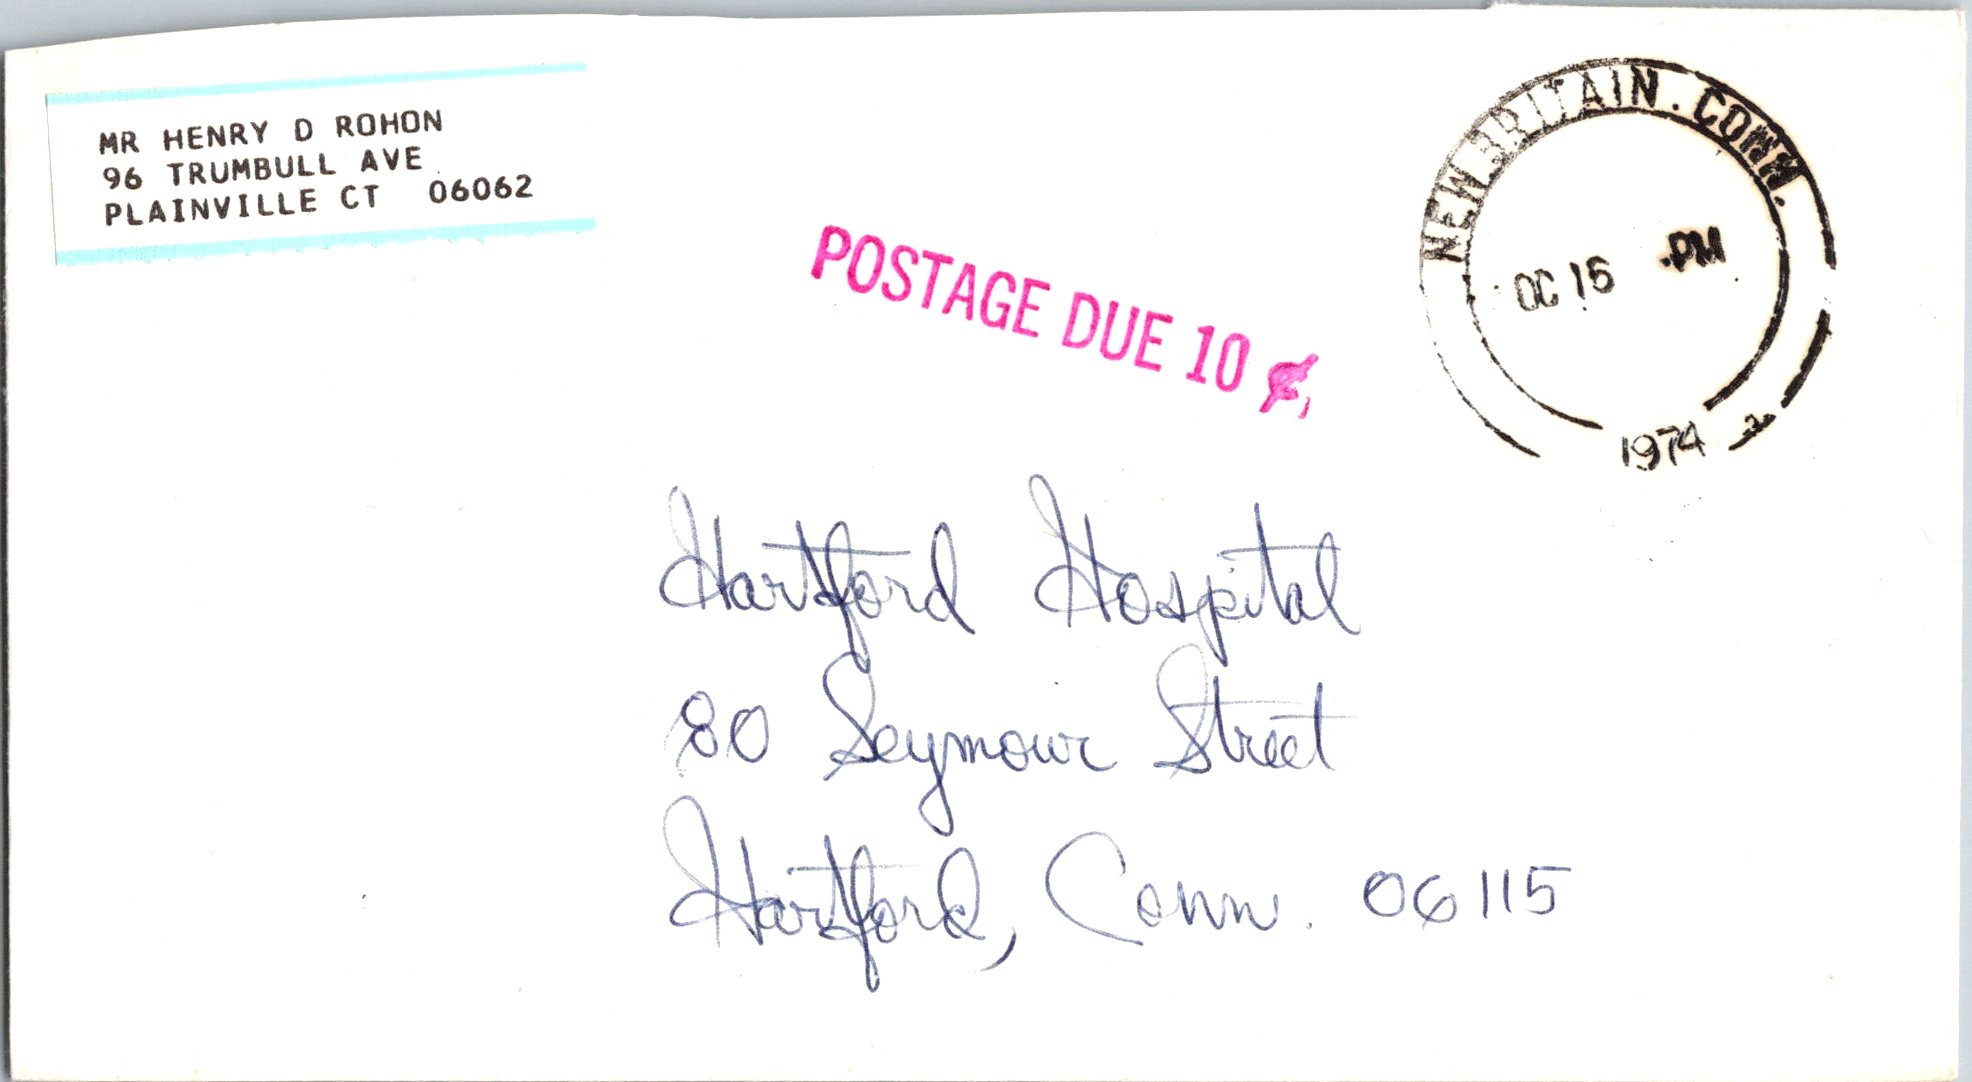 MR HENRY D ROHON
96 TRUMBULL AVE
PLAINVILLE CT 06062
NEW BRITAIN. CONN.
OC 15 PM
1974
POSTAGE DUE 10 ¢
Hartford Hospital
80 Seymour Street
Hartford, Conn. 06115